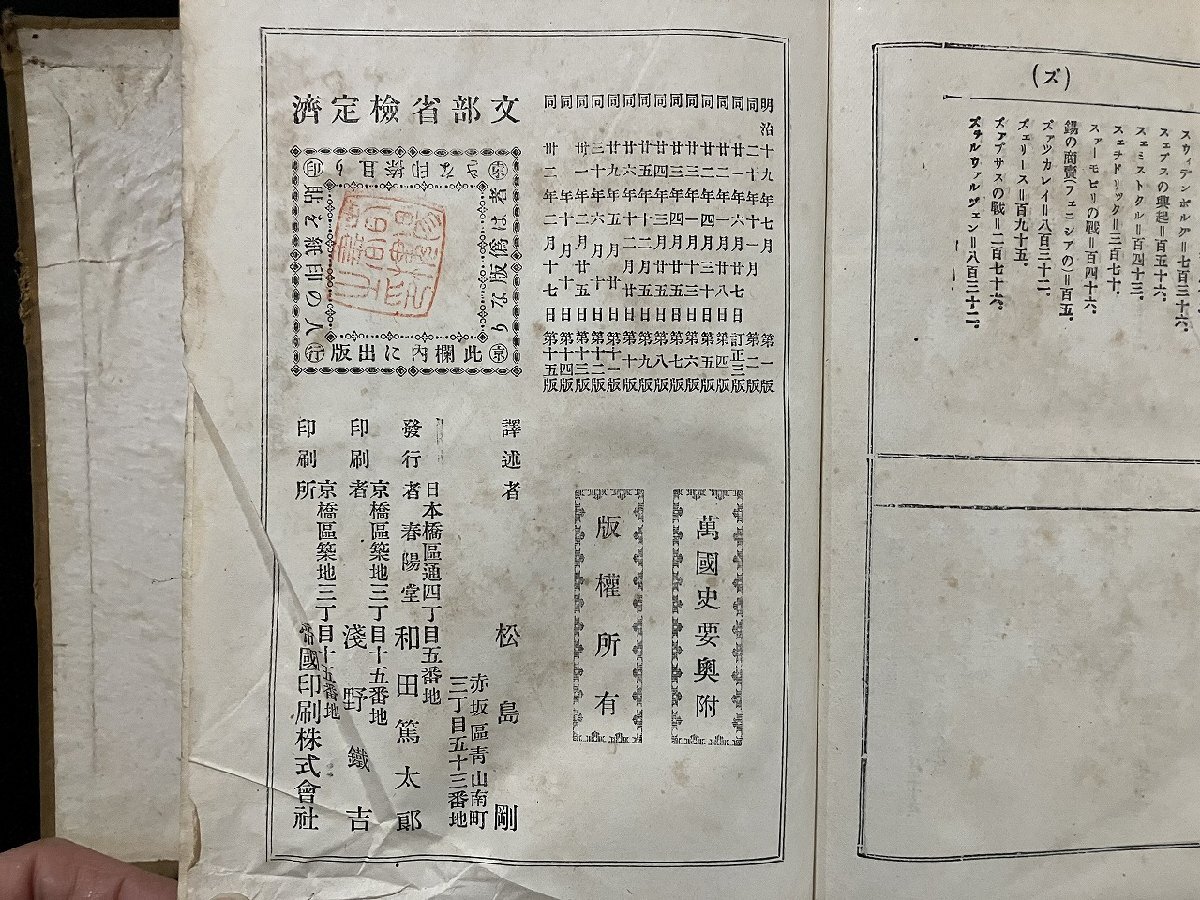 (ズ)
スウィデンボルグ＝七百三十六。
スェブスの興起＝百五十六。
スェミストクル＝百四十三。
スェオドリック＝三百七十。
スァーモピリの戰＝百四十六。
錫の商賣(フェニシアの)＝百五。
ズァッカレイ＝八百三十二。
ズェリース＝百九十五。
ズァプサスの戰＝二百七十六。
明治十九年七月 第一版
同二十年十一月 第二版
同廿一年六月廿七日 訂正三版
同廿二年一月八日 第四版
同廿二年四月三十日 第五版
同廿三年一月廿五日 第六版
同廿三年四月廿五日 第七版
同廿四年三月五日 第八版
同廿五年十二月五日 第九版
同廿六年十二月廿日 第十版
同廿九年五月廿日 第十一版
同三十年六月 第十二版
同卅一年二月廿五日 第十三版
同年十月十日 第十四版
同卅二年二月十七日 第十五版
萬國史要奧附
版權所有
文部省檢定濟
此欄內に出版
譯述者 松島剛
赤坂區靑山南町
三丁目五十三番地
日本橋區通四丁目五番地
發行者 春陽堂 和田篤太郞
京橋區築地三丁目十五番地
印刷者 淺野鐵吉
京橋區築地三丁目十五番地
印刷所 帝國印刷株式會社